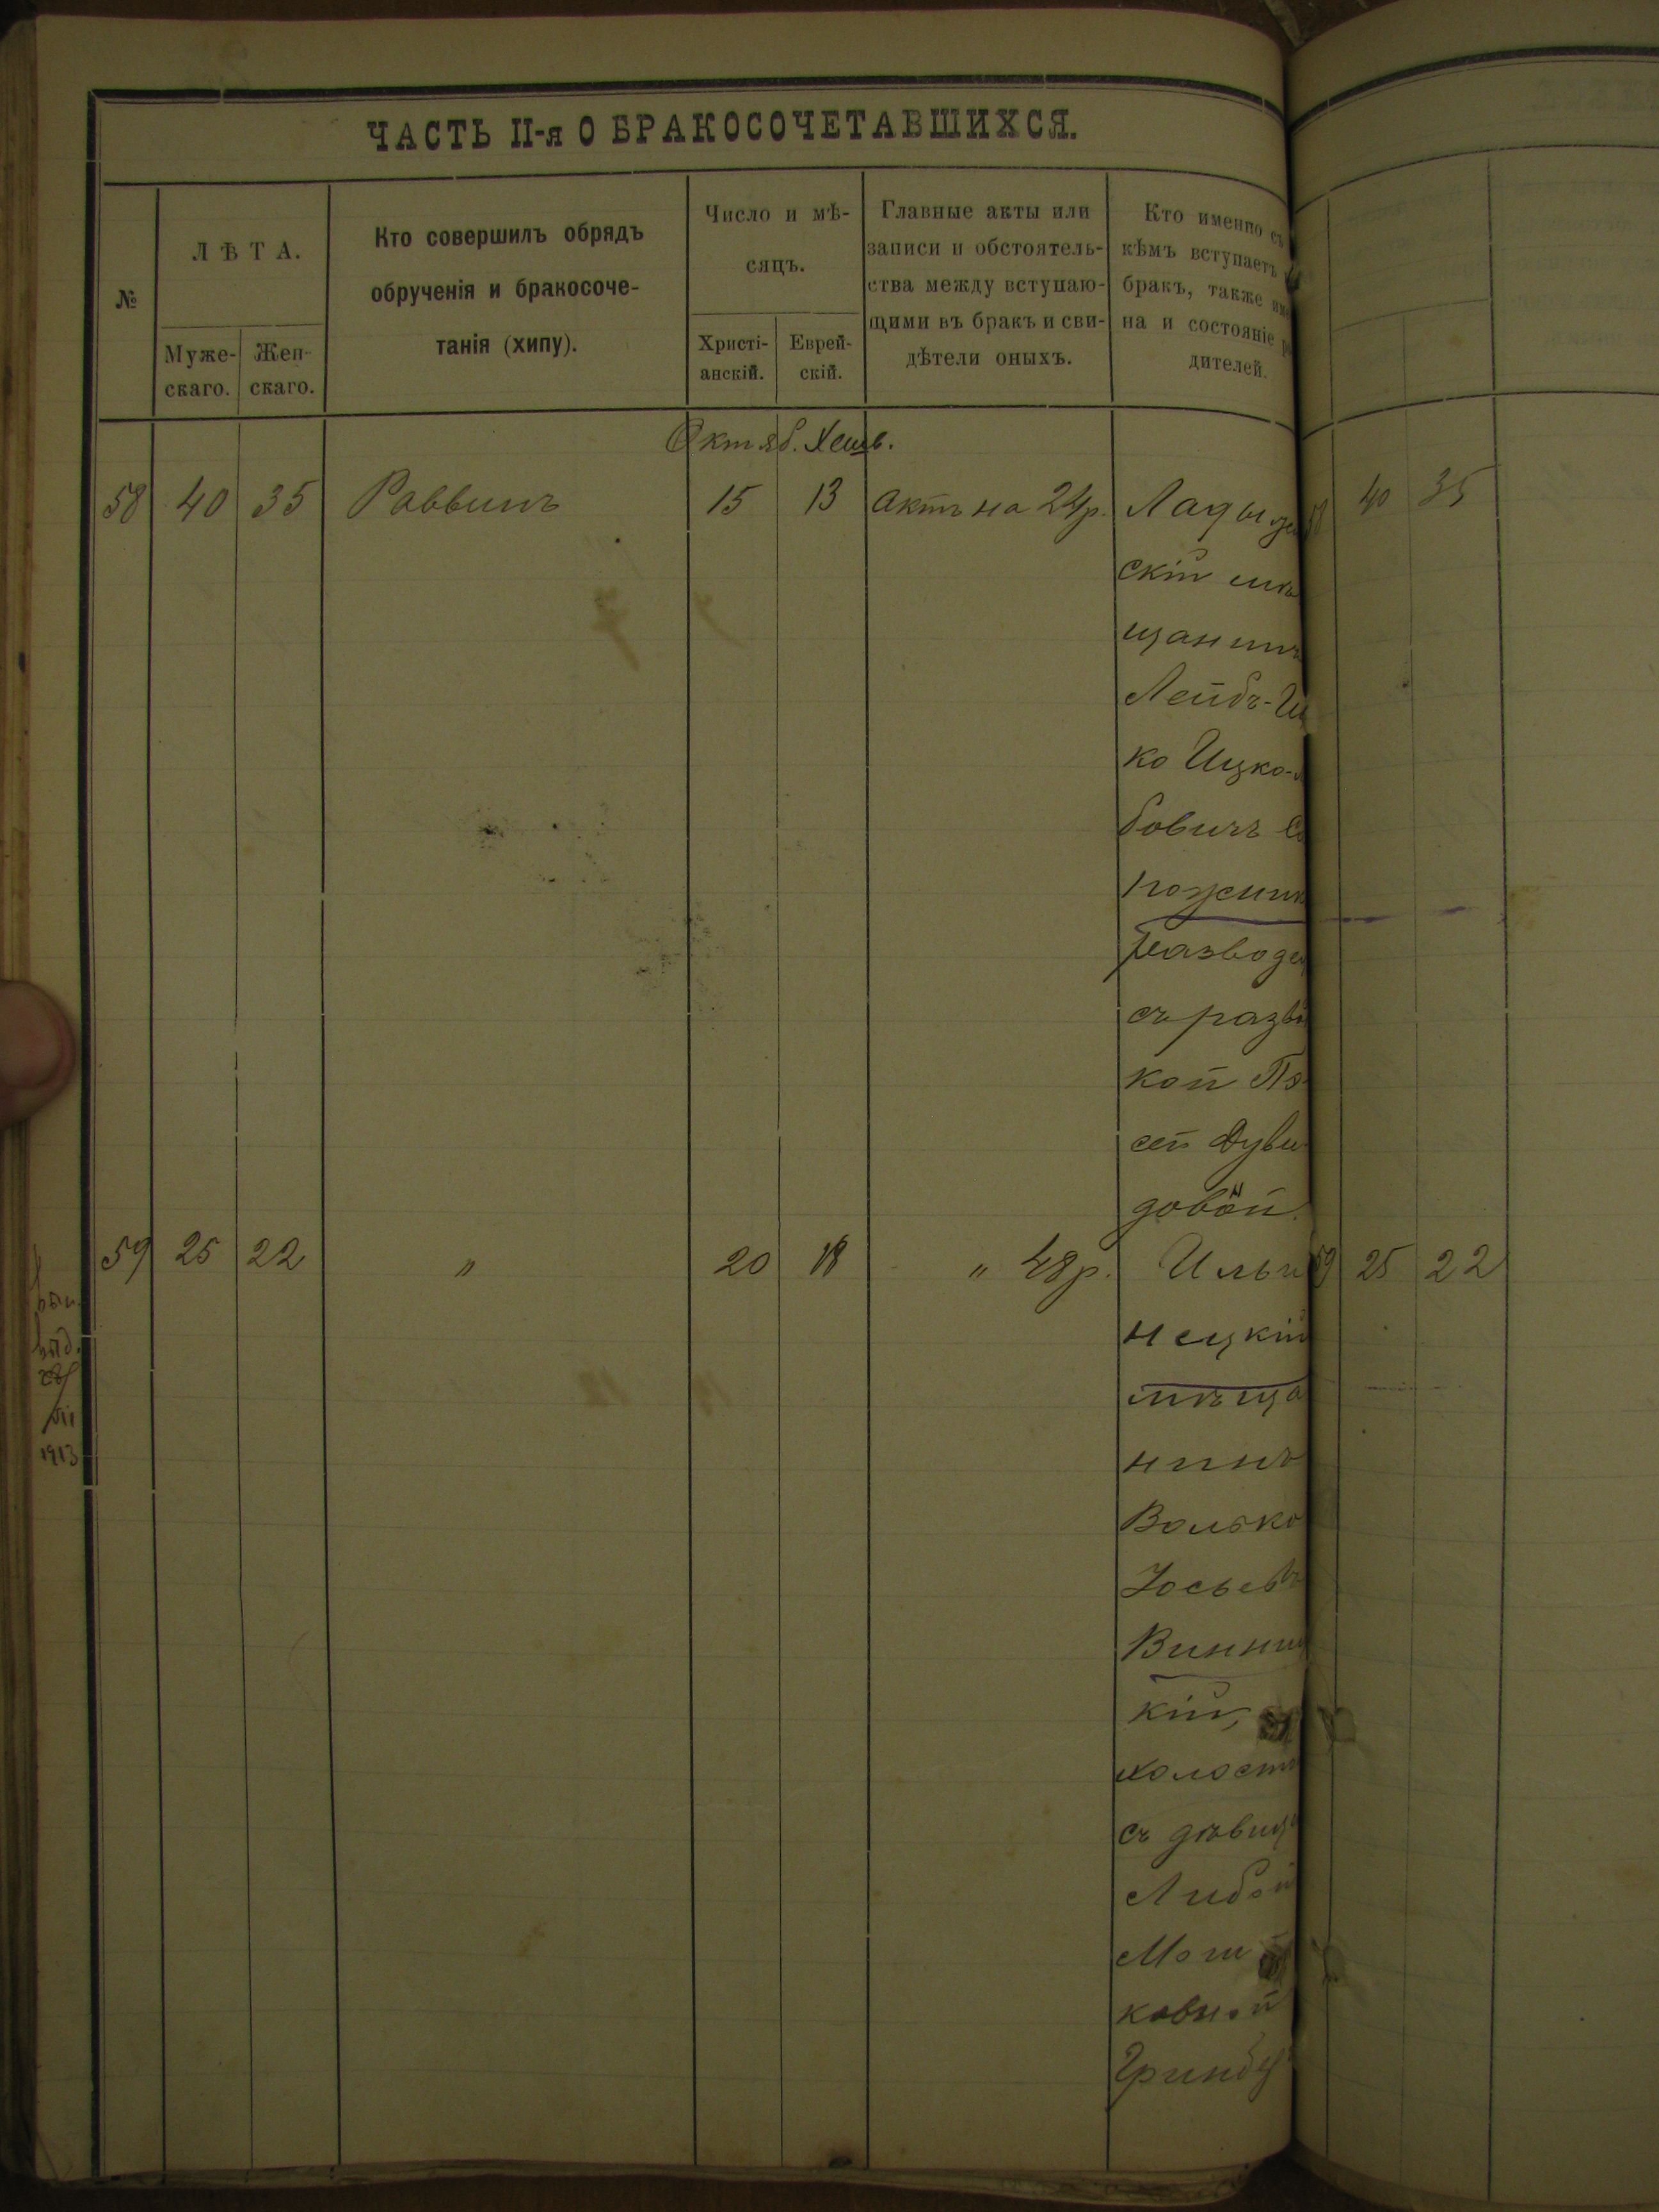 ЧАСТЬ II-я О БРАКОСОЧЕТАВШИХСЯ.
№
ЛѢТА.
Муже-
скаго.
Жен-
скаго.
Кто совершилъ обрядъ
обрученія и бракосоче-
танія (хипу).
Число и мѣ-
сяцъ.
Христі-
анскій.
Еврей-
скій.
Главные акты или
записи и обстоятель-
ства между вступаю-
щими въ бракъ и сви-
дѣтели оныхъ.
Кто именно съ
кѣмъ вступаетъ
бракъ, также
на и состояніе
дителей.
Октяб. Хешв.
58 40 35 Раввинъ 15 13 Актъ на 24 р. Ладыж
скій мѣ
щанинъ
Лейбъ-Иц
ко Ицко-Л
бовичъ Са
пожник
развод
съ разв
кой
сей Дуви
довной
59 25 22 " 20 18 " 48 р. Ильи
нецкій
мѣща
нинъ
Волько
Іосьев
Винниц
кій,
холост
съ дѣвиц
Либой
Мош
ковной
Гринб
1913
58 40 35
59 25 22